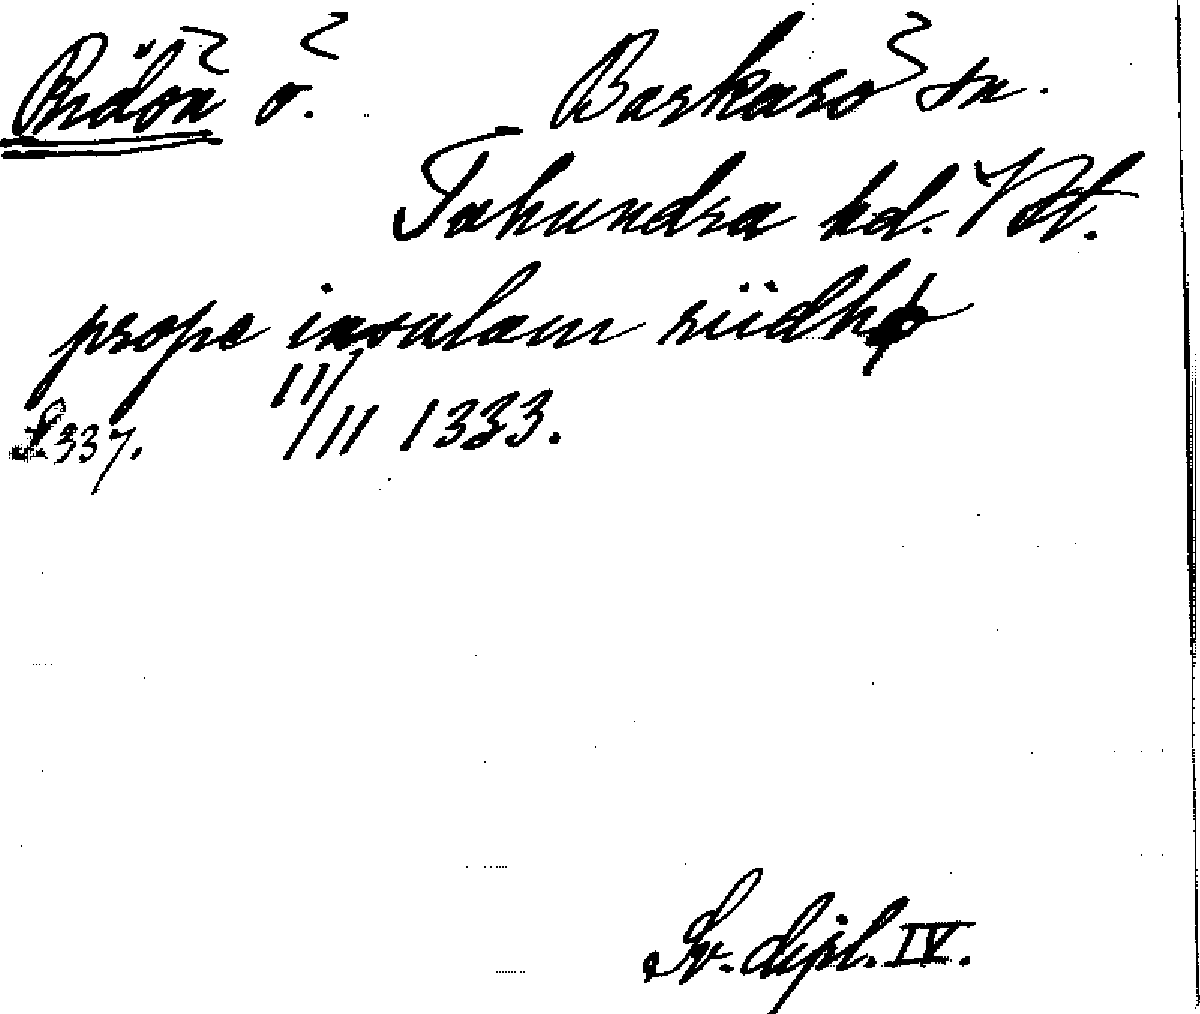 Ridön ö. Barkarö sn.
Tuhundra hd. Vstl.
prope insulam riidhø
S. 337. 11/11 1333.
Sv. dipl. IV.